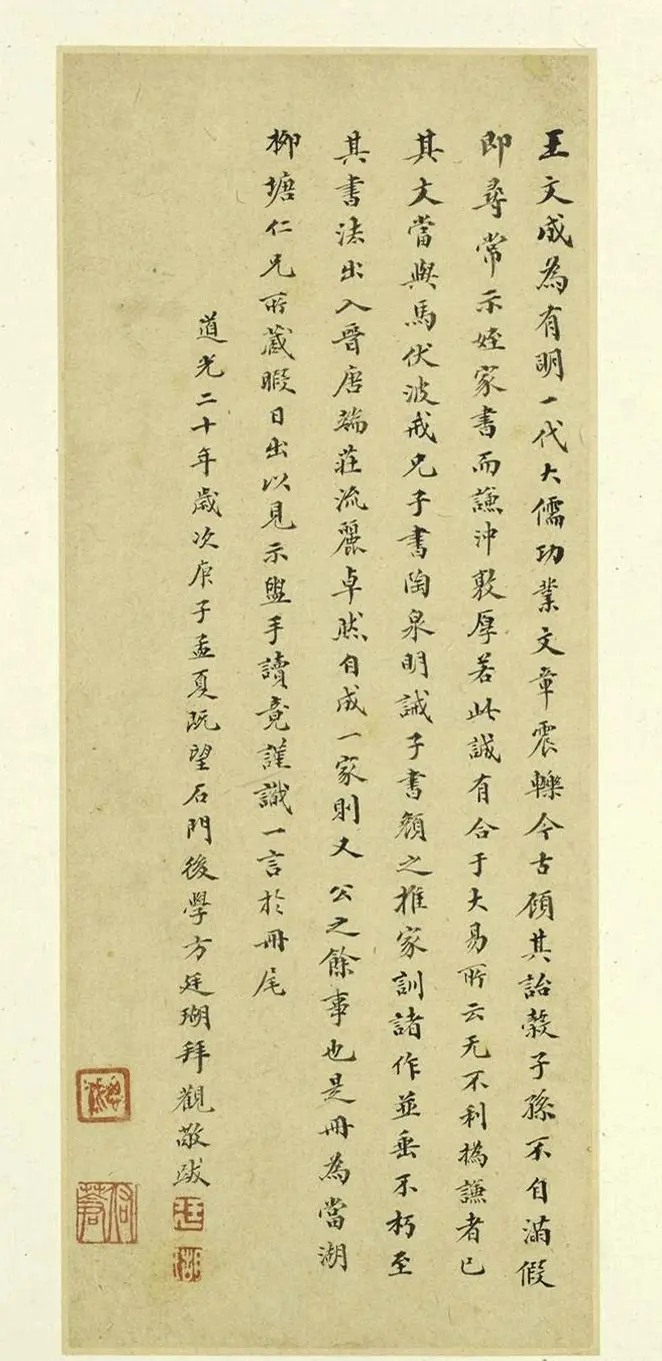 王文成為有明一代大儒功業文章震轢今古顧其詒穀子孫不自滿假
即尋常示姪家書而謙沖敦厚若此誠有合于大易所云无不利撝謙者已
其文當與馬伏波戒兄子書陶泉明誡子書顏之推家訓諸作並垂不朽至
其書法出入晉唐端莊流麗卓然自成一家則又公之餘事也是冊為當湖
柳塘仁兄所藏暇日出以見示盥手讀竟謹識一言於冊尾
道光二十年歲次庚子孟夏既望石門後學方廷瑚拜觀敬跋
廷
瑚